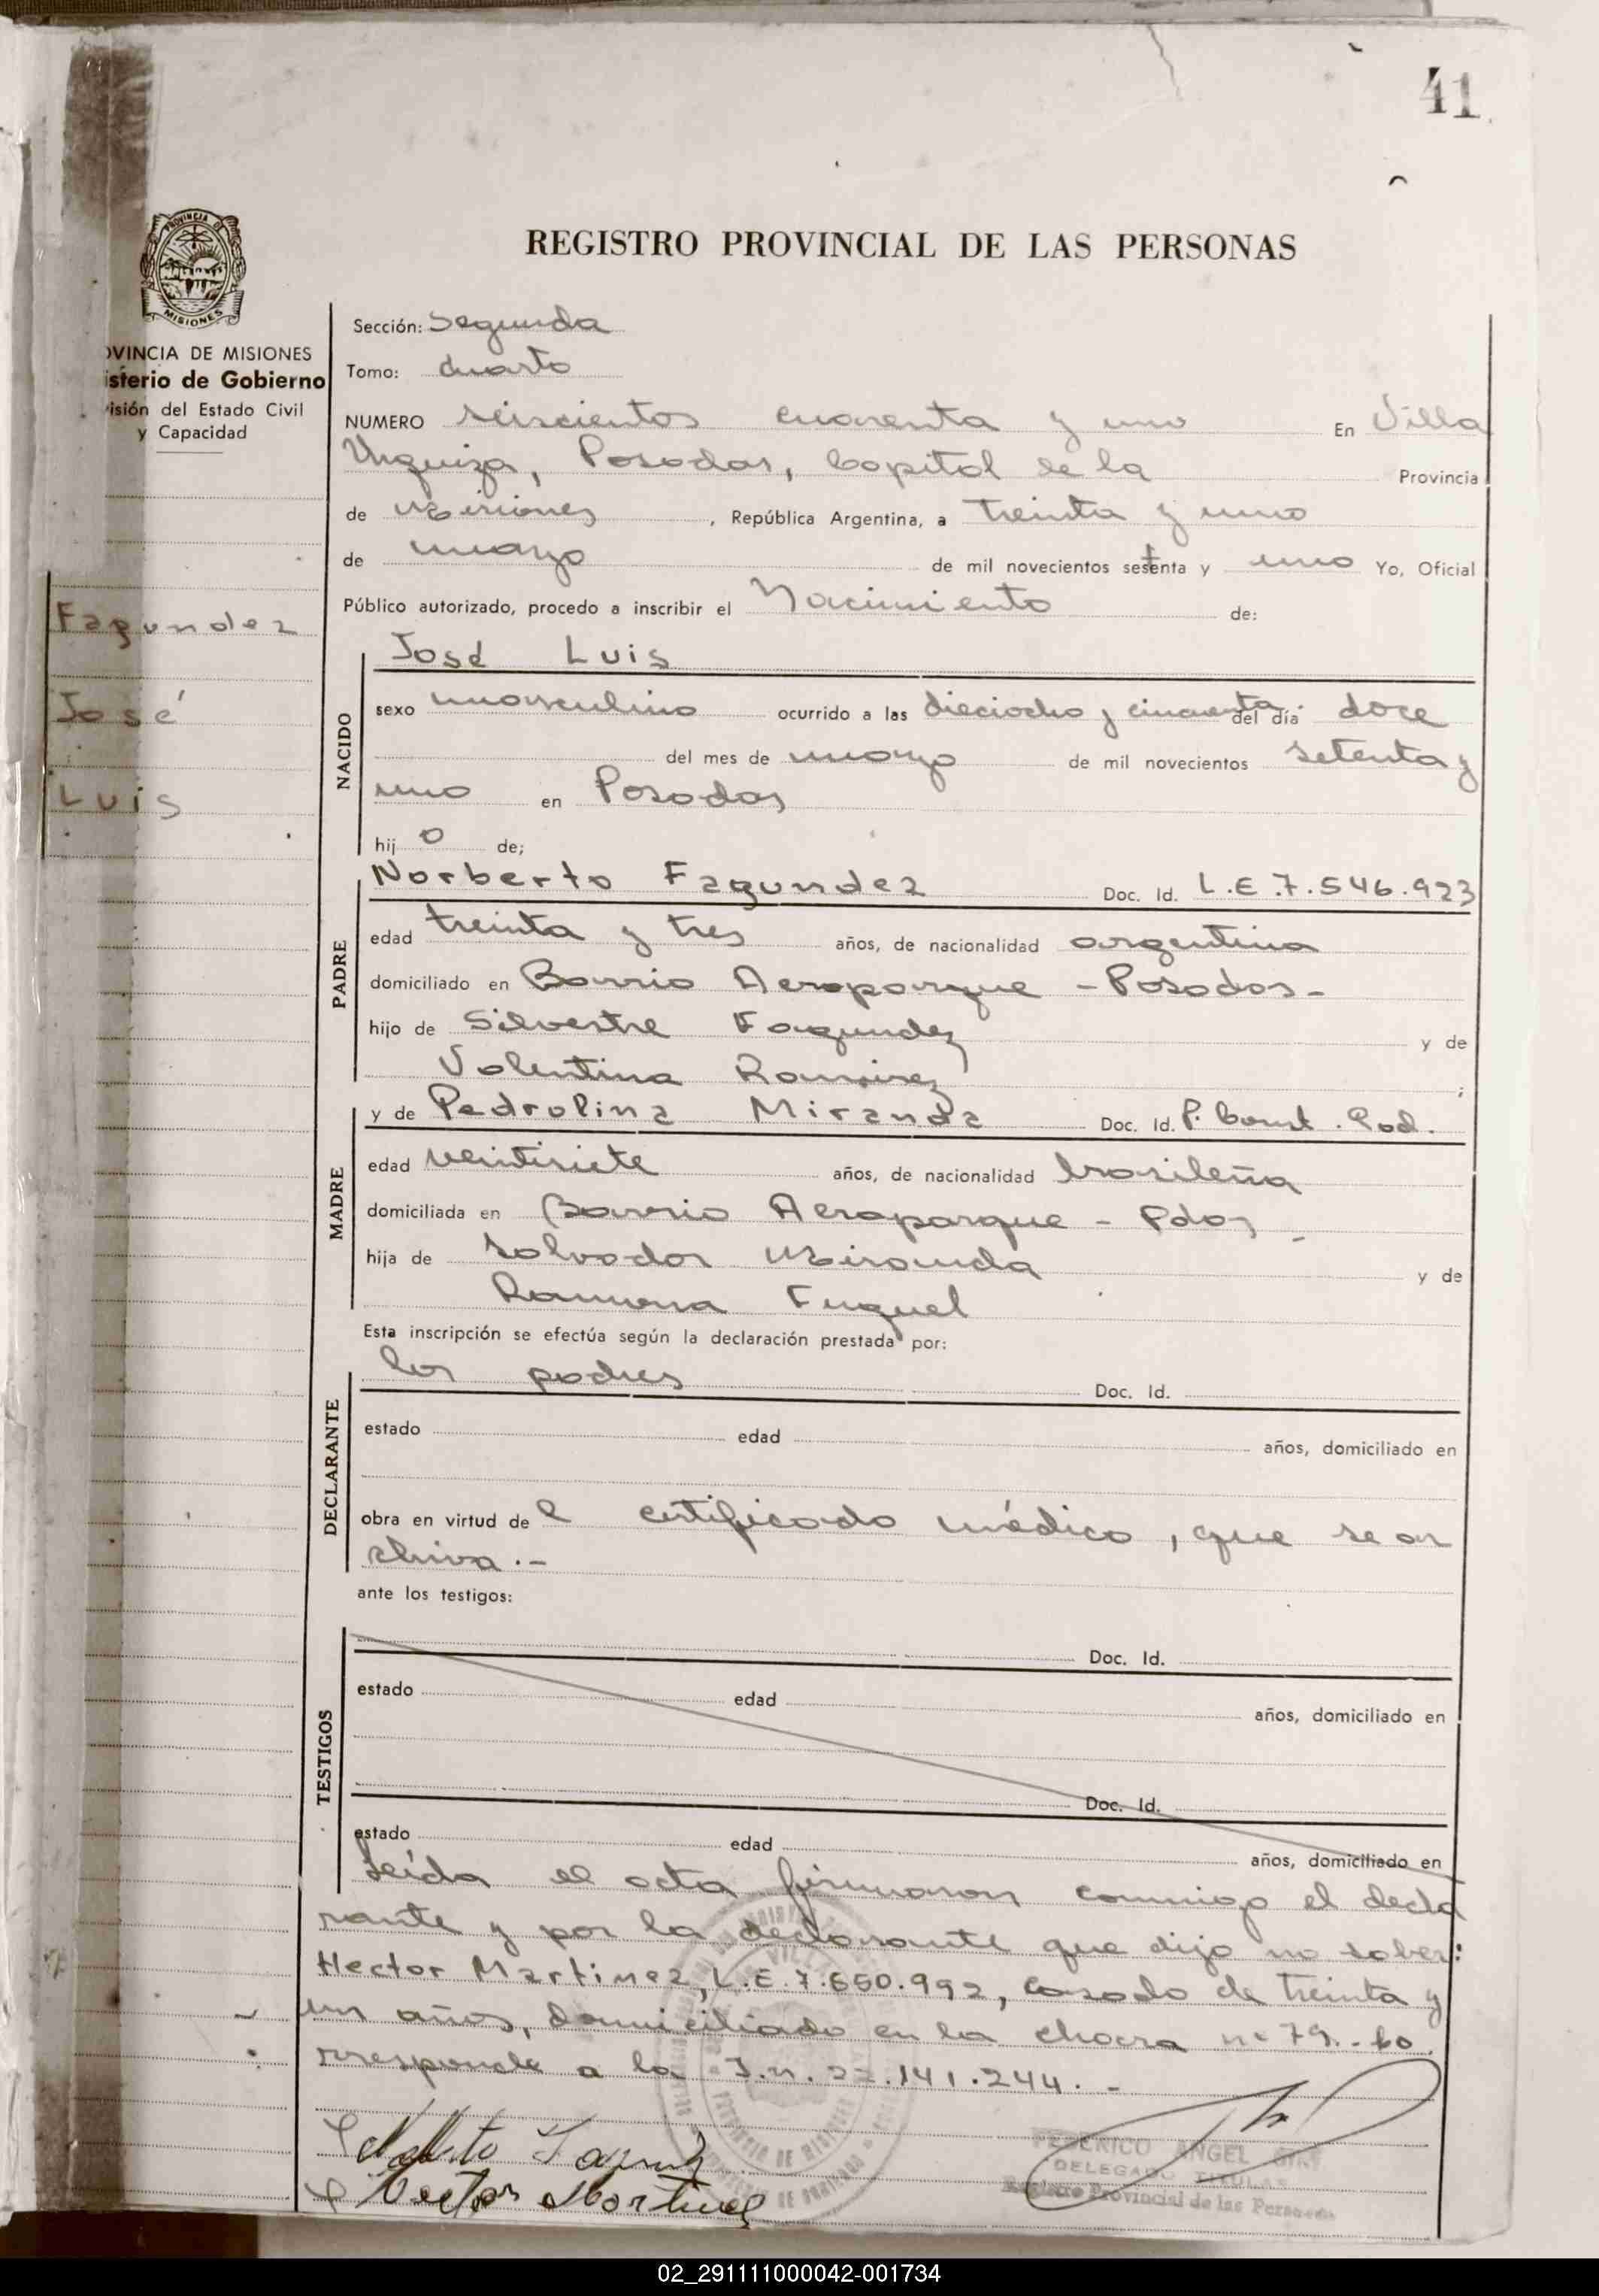 41
REGISTRO PROVINCIAL DE LAS PERSONAS
MISIONES
VINCIA DE MISIONES
isterio de Gobierno
isión del Estado Civil
y Capacidad
Sección: Segunda
Tomo: cuarto
NUMERO seiscientos cuarenta y uno En Villa
Urquiza, Posadas, Capital de la Provincia
de Misiones, República Argentina, a treinta y uno
de marzo de mil novecientos setenta y uno Yo, Oficial
Público autorizado, procedo a inscribir el Nacimiento de:
Fagundez
José
Luis
José Luis
NACIDO
sexo masculino ocurrido a las dieciocho y cincuenta del día doce
del mes de marzo de mil novecientos setenta y
uno en Posadas
hij o de;
Norberto Fagundez Doc. Id. L.E 7.546.923
PADRE
edad treinta y tres años, de nacionalidad argentina
domiciliado en Barrio Aeroparque - Posadas -
hijo de Silvestre Fagundez y de
Valentina Ramirez ;
y de Pedrolina Miranda Doc. Id. P. Const. Pod.
MADRE
edad veintisiete años, de nacionalidad brasileña
domiciliada en Barrio Aeroparque - Pdas -
hija de Salvador Miranda y de
Ramona Fuquel
Esta inscripción se efectúa según la declaración prestada por:
los padres Doc. Id.
DECLARANTE
estado edad años, domiciliado en
obra en virtud de l certificado médico, que se ar
chiva.-
ante los testigos:
Doc. Id.
TESTIGOS
estado edad años, domiciliado en
Doc. Id.
estado edad años, domiciliado en
Leída el acta firmaron conmigo el decla
rante y por la declarante que dijo no saber:
Hector Martinez, L.E.7.550.992, casado de treinta y
un años, domiciliado en la chacra nº 79.- Co
rresponde a la I.n. 22.141.244. -
Hector Martinez
FEDERICO ANGEL
DELEGADO TITULAR
Registro Provincial de las Personas
02_291111000042-001734